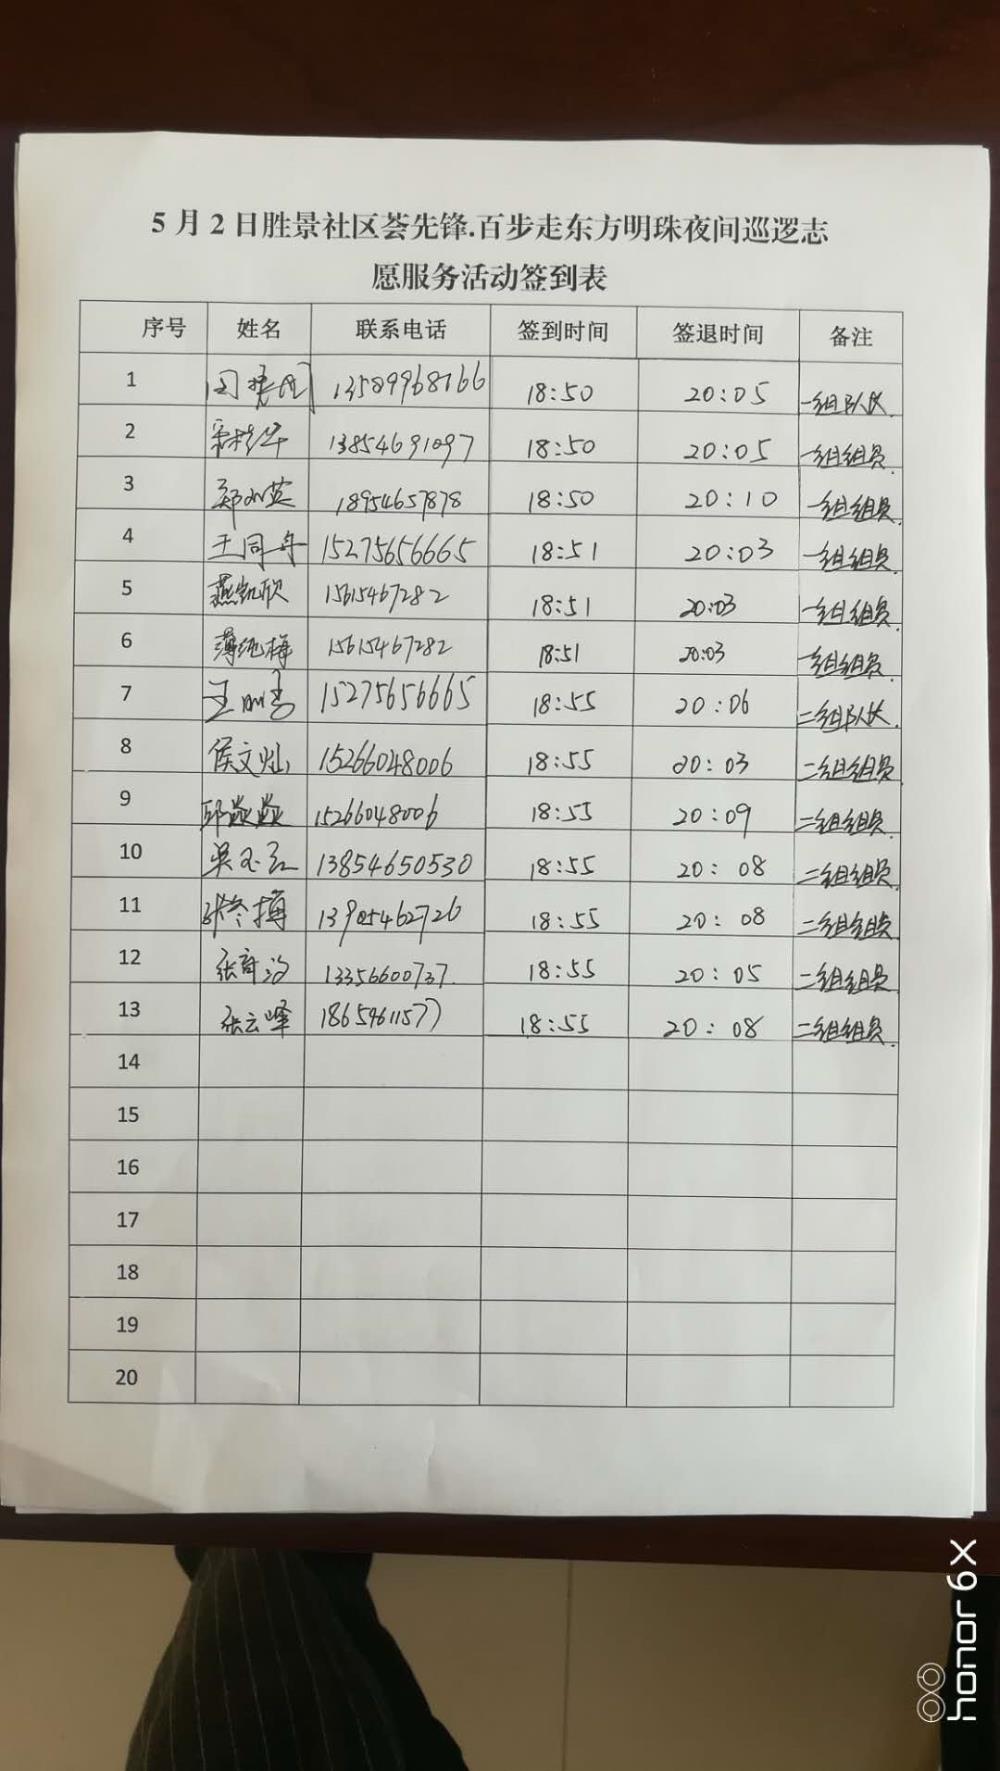 5月2日胜景社区荟先锋.百步走东方明珠夜间巡逻志
愿服务活动签到表
序号 姓名 联系电话 签到时间 签退时间 备注
1 13589968166 18:50 20:05 一组队长
2 13854691097 18:50 20:05 一组组员
3 18954657878 18:50 20:10 一组组员
4 王同舟 15275656665 18:51 20:03 一组组员
5 燕凯欣 15615467282 18:51 20:03 一组组员
6 薄纯梅 15615467282 18:51 20:03 一组组员
7 15275656665 18:55 20:06 二组队长
8 侯文灿 15266048006 18:55 20:03 二组组员
9 邱焱焱 15266048006 18:55 20:09 二组组员
10 吴玉红 13854650530 18:55 20:08 二组组员
11 13905462726 18:55 20:08 二组组员
12 13356600737 18:55 20:05 二组组员
13 张云峰 18659611577 18:55 20:08 二组组员
14
15
16
17
18
19
20
honor 6X